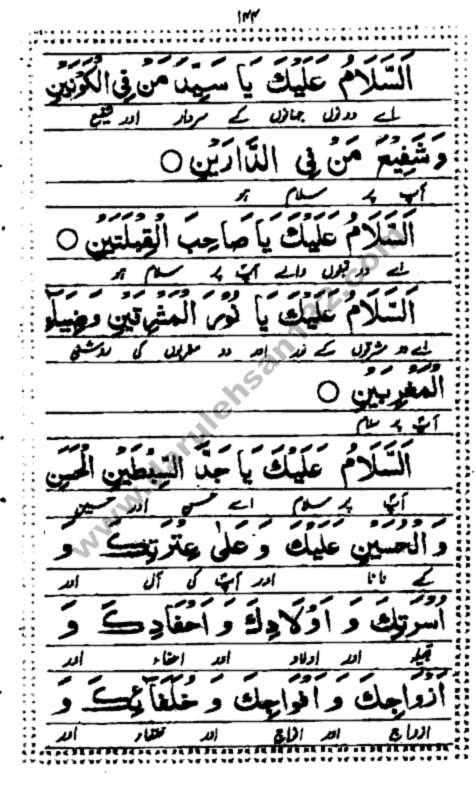 ١٤٤
اَلسَّلَامُ عَلَيْكَ يَا سَيِّدَ مَنْ فِي الْكَوْنَيْنِ
اے دونوں جہانوں کے سردار اور شفیع
وَشَفِيْعَ مَنْ فِي الدَّارَيْنِ ○
آپ پر سلام ہو
اَلسَّلَامُ عَلَيْكَ يَا صَاحِبَ الْقِبْلَتَيْنِ ○
اے دو قبلوں والے آپ پر سلام ہو
اَلسَّلَامُ عَلَيْكَ يَا نُوْرَ الْمَشْرِقَيْنِ وَضِيَآءَ
اے دو مشرقوں کے نور اور دو مغربوں کی روشنی
الْمَغْرِبَيْنِ ○
آپ پر سلام
اَلسَّلَامُ عَلَيْكَ يَا جَدَّ السِّبْطَيْنِ الْحَسَنِ
آپ پر سلام اے حسن اور حسین
وَالْحُسَيْنِ عَلَيْكَ وَ عَلٰى عِتْرَتِكَ وَ
کے نانا اور آپ کی آل اور
اُسْرَتِكَ وَ اَوْلَادِكَ وَ اَحْفَادِكَ وَ
قبیلہ اور اولاد اور احفاد اور
اَزْوَاجِكَ وَ اَفْوَاجِكَ وَ خُلَفَآئِكَ وَ
ازواج اور افواج اور خلفاء اور
www.darulehsan